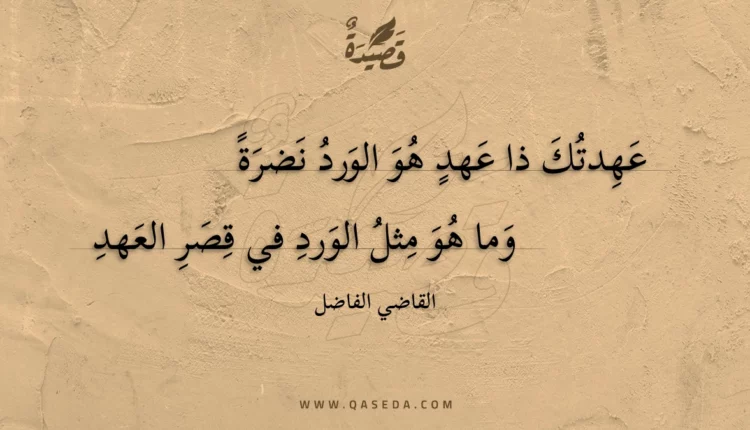 قَصِيدَةٌ
عَهِدتُكَ ذا عَهدٍ هُوَ الوَردُ نَضرَةً
وَما هُوَ مِثلُ الوَردِ في قِصَرِ العَهدِ
القاضي الفاضل
WWW.QASEDA.COM